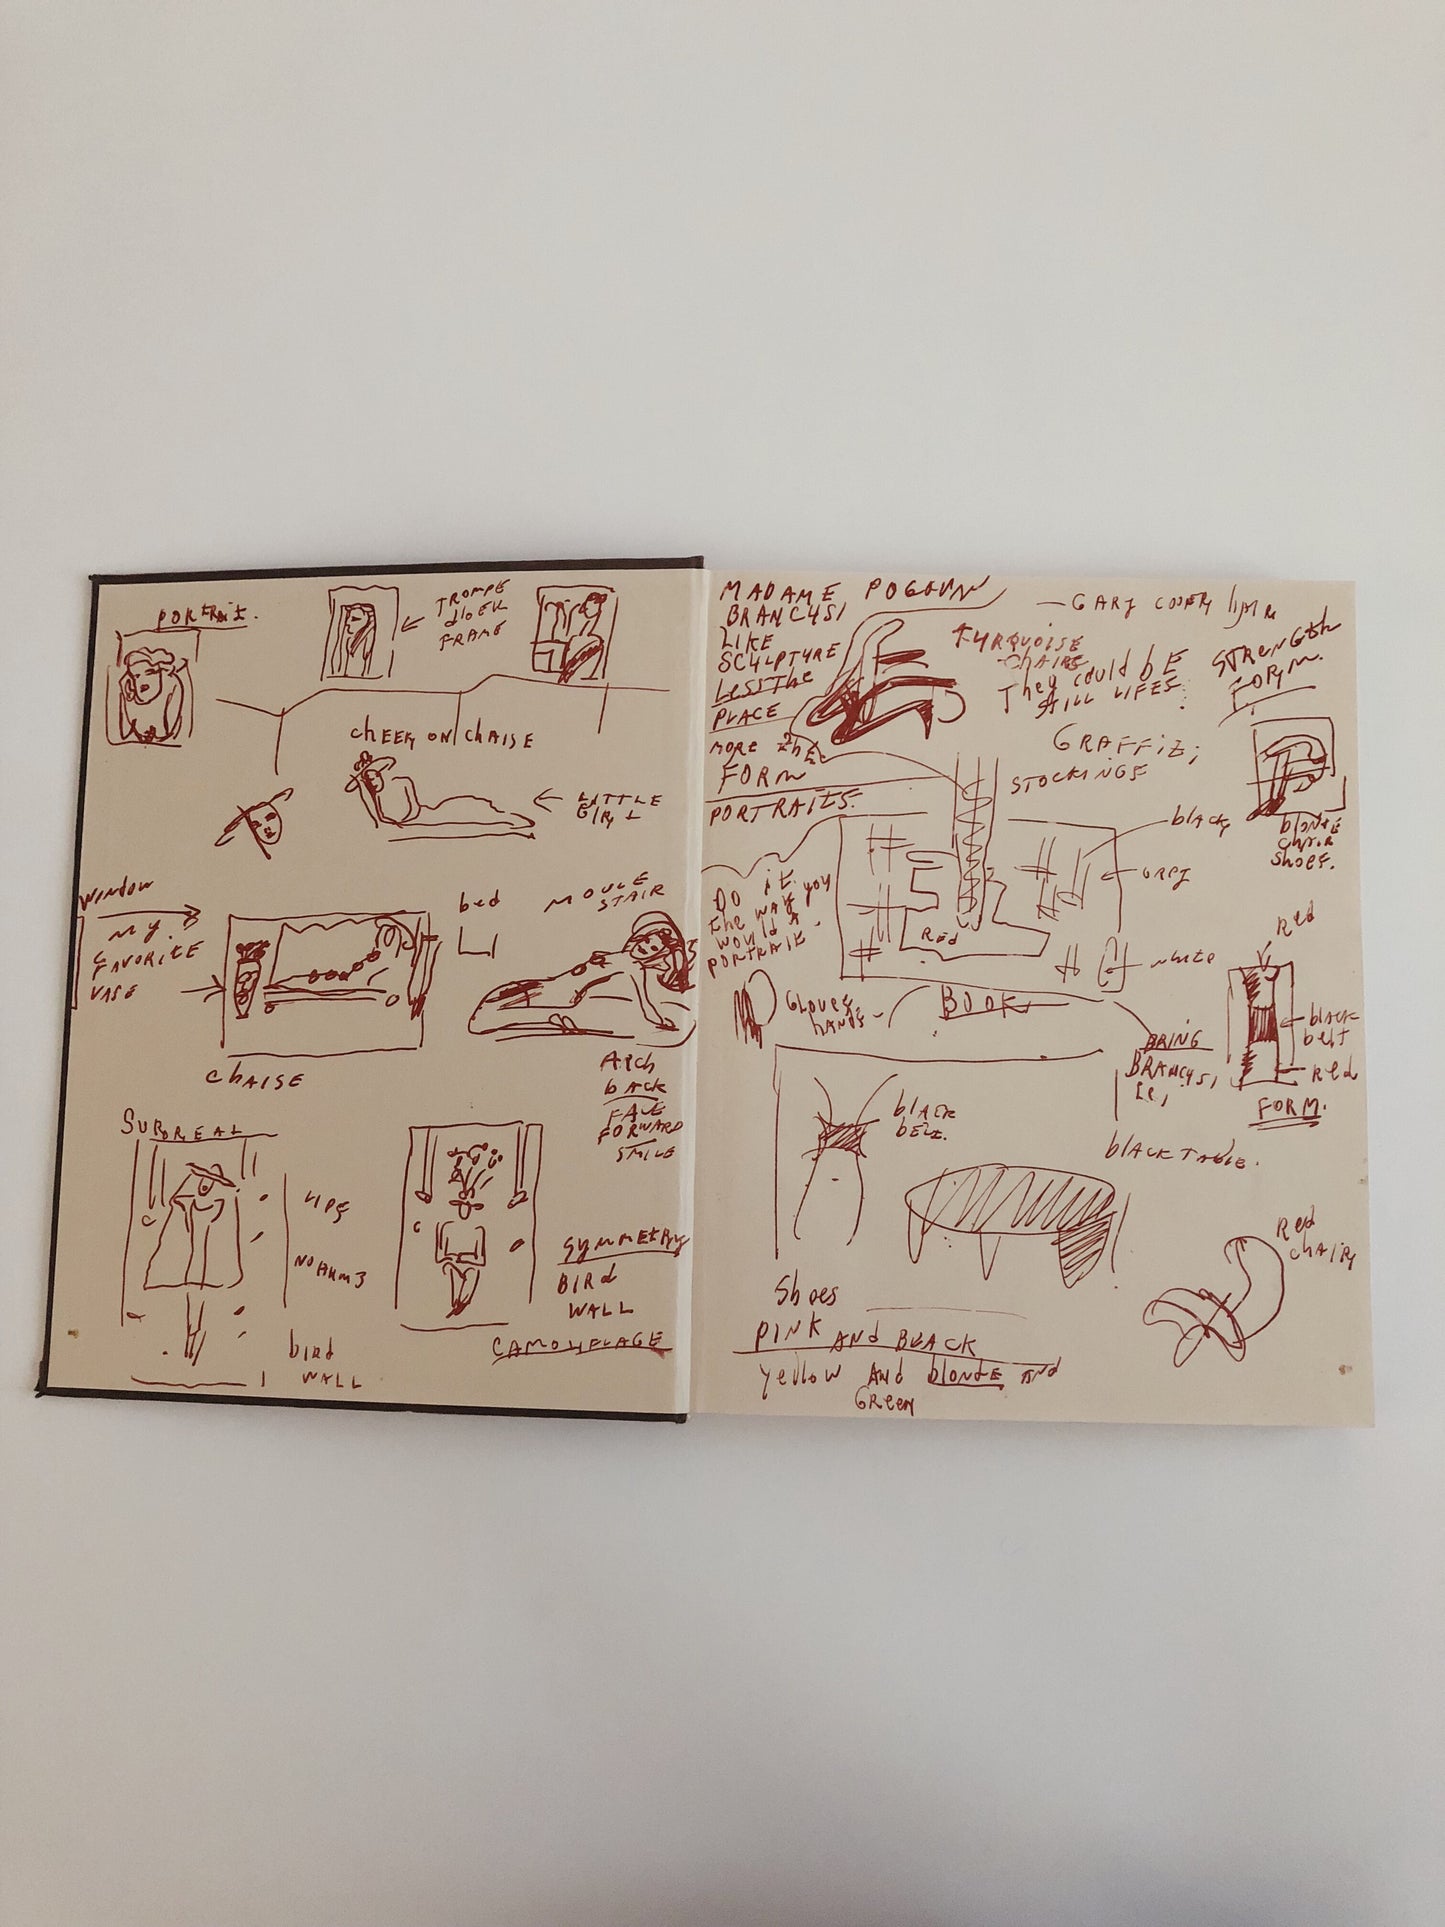 portrait.
TROMPE
FRAME
CHEEK ON CHAISE
LITTLE
GIRL
WINDOW
MY
FAVORITE
VASE
bed
STAIR
CHAISE
ARCH
bACK
FACE
FORWARD
SMILE
SURREAL
LIPS
NO ARMS
bird
WALL
SYMMETRY
BIRd
WALL
CAMOUFLAGE
MADAME
BRANCUSI
LIKE
SCULPTURE
LESS THE
PLACE
MORE THE
FORM
PORTRAITS.
GARY
TURQUOISE
CHAIRS
They could bE
STILL LIFES
STRENGTH
FORM.
GRAFFITI
STOCKINGS
black
GREY
blonde
CHAIR
Shoes.
DO it
the way you
would A
PORTRAIT
RED
white
Red
GLOVES
HANDS
BOOK
BRING
BRANCUSI
black
belt
Red
FORM.
bLACK
bELT.
bLACK TABLE.
Red
CHAIR
Shoes
PINK AND BLACK
Yellow AND bLONdE AND
GREEN